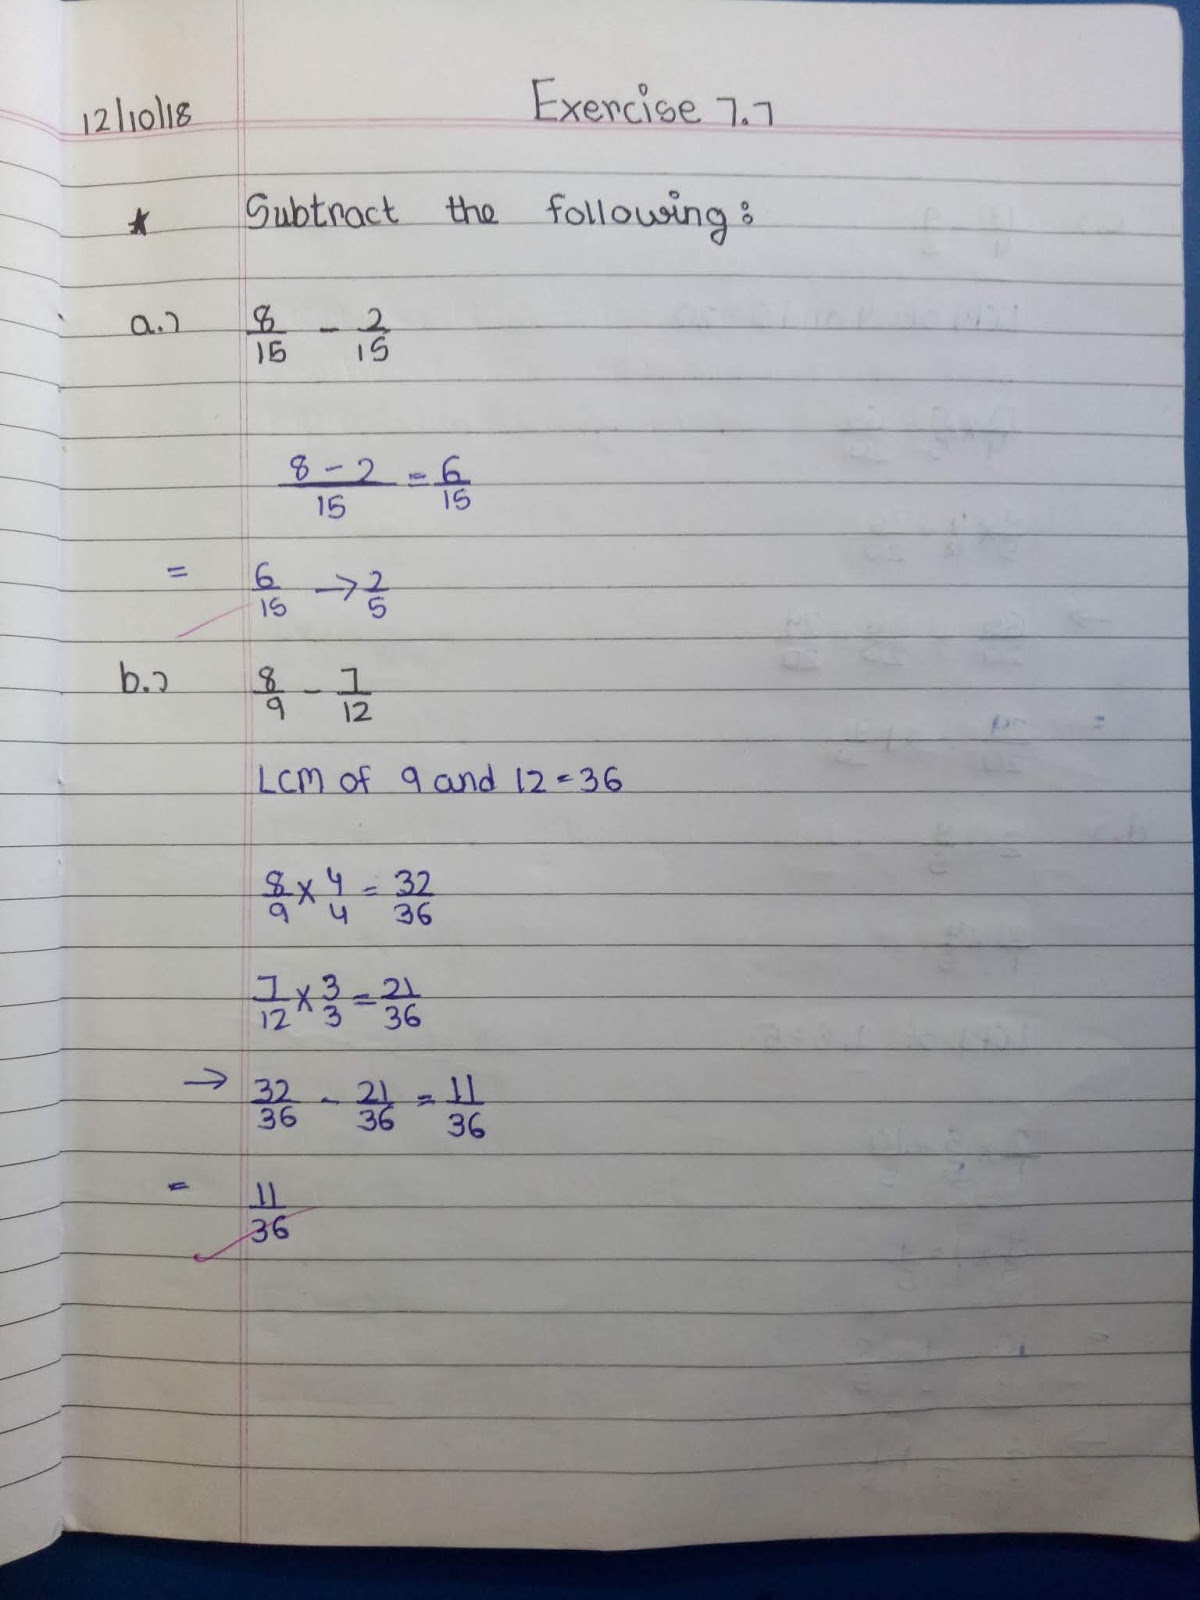 12/10/18
Exercise 7.7
* Subtract the following:
a.) 8/15 - 2/15
8-2/15 = 6/15
= 6/15 → 2/5
b.) 8/9 - 7/12
LCM of 9 and 12 = 36
8/9 × 4/4 = 32/36
7/12 × 3/3 = 21/36
→ 32/36 - 21/36 = 11/36
= 11/36